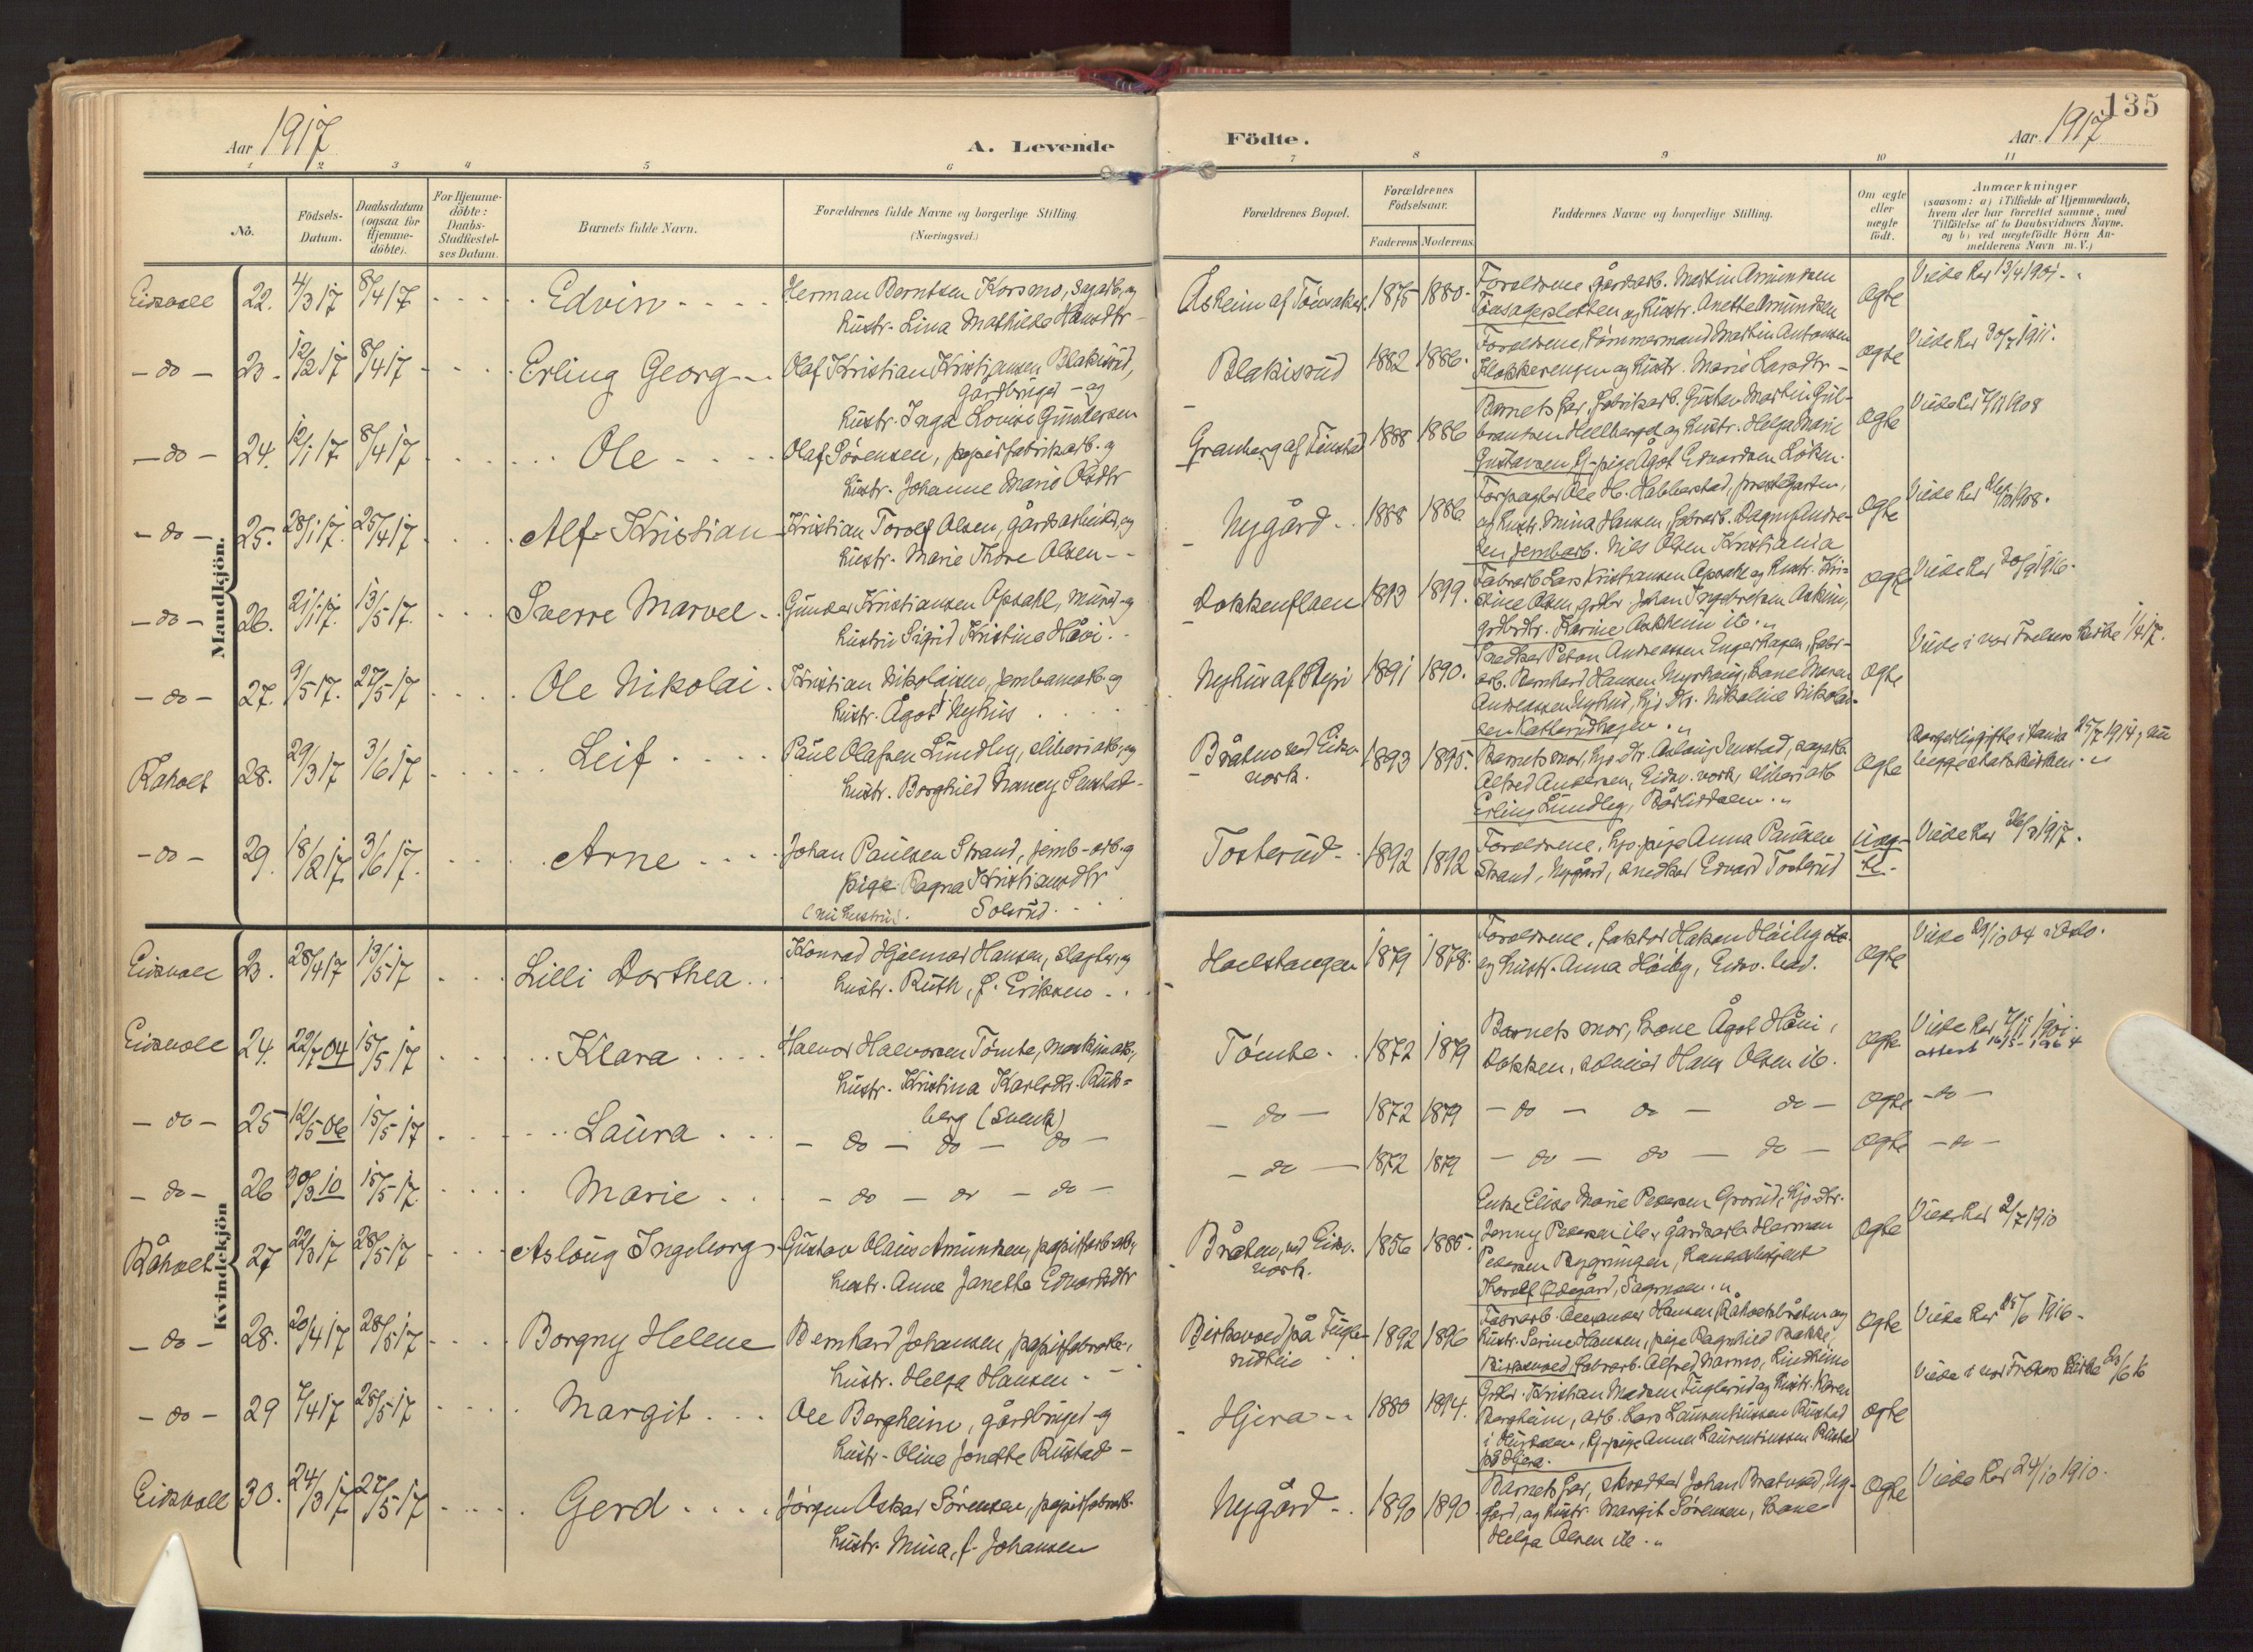 135
Aar 1917
A. Levende
Födte.
Aar 1917
1 2 3 4 5 6 7 8 9 10 11
No.
Födsels-Datum.
Daabsdatum (ogsaa for Hjemme-döbte).
For Hjemme-döbte: Daabs-Stadfæstel-ses Datum.
Barnets fulde Navn.
Forældrenes fulde Navne og borgerlige Stilling
(Næringsvei.)
Forældrenes Bopæl.
Forældrenes Födselsaar.
Faderens Moderens
Faddernes Navne og borgerlige Stilling.
Om ægte eller uægte födt.
Anmærkninger
(saasom: a) i Tilfælde af Hjemmedaab, hvem der har forrettet samme, med Tilföielse af to Daabsvidners Navne. og b) ved uægtefödte Börn Anmelderens Navn m. V.)
Mandkjön.
Eidsvoll 22. 4/3 17 8/4 17 Edvin
Herman Berntsen Korsmo, sagarb., og
hustr. Lina Mathilde Hansdtr
Åsheim af Tönsaker 1875 1880
Forældrene, gårdarb. Martin Amundsen
og hustr. Anette Amundsen
ægte
Viede her 13/4 1901
- do - 23. 12/2 17 8/4 17 Erling Georg
Olaf Kristian Kristiansen Blakisrud,
gårdbruger og
hustr. Inga Lovise Gundersen
Blakisrud 1882 1886
Forældrene, tömmermand Martin Antonsen
Klokkerengen og hustr. Marie Larsdtr
ægte
Viede her 30/7 1911.
- do - 24. 12/1 17 8/4 17 Ole
Olaf Sörensen, papirfabrikarb. og
hustr. Johanne Marie Olsdtr
Granberg af Finstad 1888 1886
Barnets far, fabrikarb. Gustav Martin Gulbrandsen
Hellberget og hustr. Helga Marie
Gustavsen, tj-pige Ågot Edvardsen Löken.
ægte
Viede her 7/11 1908
- do - 25. 28/1 17. 25/4 17 Alf Kristian
Kristian Torolf Olsen, gårdsarbeider, og
hustr. Marie Thore Olsen
Nygård 1888 1886
Forpagter Ole H. Habberstad, prestegarden,
og hustr. Mina Hansen, fabrarb. Dagny Andresen
jernbarb. Nils Olsen Kristiania
ægte
Viede her 1908.
- do - 26. 21/1 17. 13/5 17. Sverre Marvel
Gunder Kristiansen Opsahl, murer og
hustru Sigrid Kristine Håvi.
Dokkenflaen 1893 1899.
Fabrarb Lars Kristiansen Opsahl og hustr. Kristine
Olsen, grdbr. Johan Ingebretsen Askim,
grdbrdtr. Karine Askheim ib.
ægte
Viede her 30/9 1916.
- do - 27. 9/5 17. 27/5 17 Ole Nikolai
Kristian Nikolaisen, jernbanearb. og
hustr. Ågot Nyhus
Nyhus af Styri 1891 1890.
Snedker Peton Andreassen Engerhagen, fabrarb.
Bernhard Hansen Myrhaug, kone Maren
Andreassen Nyhus, hjv. dtr. Nikoline Nikolaisen
ægte
Viede i vor Frelsers kirke 1/4 17.
Råholt 28. 29/3 17 3/6 17 Leif
Paul Olafsen Lundby, sliberiarb., og
hustr. Borghild Nancy Senstad
Bråten ved Eidsv. verk. 1893 1895.
Barnets mor, hjv. dtr. Aslaug Senstad, sagarb.
Alfred Andersen, Eidsv. verk, sliberiarb
Erling Lundby, Bårlidalen.
ægte
Borgerlig gifte 25/7 1914, nu
begge i statskirken.
- do - 29. 18/2 17 3/6 17. Arne
Johan Paulsen Strand, jernb-arb. og
pige Ragna Kristiansdtr
(nu hustru). Solerud.
Tosterud 1892 1892
Forældrene, hjv. pige Anna Paulsen
Strand, Nygård, snedker Edvard Tosterud
uægte.
Viede her 26/3 1917.
Kvindekjön
Eidsvoll 23. 28/4 17 13/5 17 Lilli Dorthea
Konrad Hjalmar Hansen, slagter, og
hustr. Ruth, f. Eriksen
Haelstangen 1879 1878.
Forældrene, faktor Hakon Höiby
og hustr. Anna Höiby, Eidsv. bad.
ægte
Viede 29/10 04 i Oslo.
Eidsvoll 24. 22/7 04 15/5 17 Klara
Halvor Halvorsen Tömte, maskinarb.,
hustr. Kristina Karlsdtr. Rudsberg
(svensk)
Tömte 1872 1879
Barnets mor, kone Ågot Håvi,
Dokken, Hans Olsen ib.
ægte
Viede her 7/11 1901.
attest
- do - 25 12/5 06 15/5 17 Laura
- do - do - do -
- do - 1872 1879 - do - do - do - ægte - do -
- do - 26 30/3 10 15/5 17 Marie
- do - do - do -
- do - 1872 1879 - do - do - do - ægte - do -
Råholt 27 22/3 17 28/5 17 Aslaug Ingeborg
Gustav Olaus Amundsen, papirfarb-arb,
hustr. Anne Janette Edvardsdtr
Bråten, ved Eidsv. verk. 1856 1885.
Enke Elise Marie Pedersen Grorud, hjv. dtr.
Jenny Pedersen ib., gårdsarb Herman
Pedersen Bygningen,
Thorolf Ödegård, Sagmoen.
ægte
Viede her 2/7 1910
- do - 28. 20/4 17 28/5 17 Borgny Helene
Bernhard Johansen, papirfabrarb.,
hustr. Helga Hansen
Birkevold på Fuglerudhei 1892 1896
Fabrarb. Alexander Hansen Råholtsbråten og
hustr. Serine Hansen, pige Ragnhild Bakke,
Birkevold, fabrarb. Alfred Narmo, Lindheim
ægte
Viede her 25/6 1916.
- do - 29 7/4 17 28/5 17 Margit
Ole Bergheim, gårdbruger og
hustr. Oline Jonette Rustad
Hjera 1880 1894.
Grdbr. Kristian Madsen Fuglerud og hustr. Karen
Bergheim, arb. Lars Laurentiussen Rustad
i Hurdalen, tj-pige Anna Laurentiussen Rustad
på Hjera.
ægte
Viede i vor Frelsers kirke /6 16
Eidsvoll 30. 24/3 17 27/5 17 Gerd
Jörgen Oskar Sörensen, papirfabrarb.
hustr. Mina, f. Johansen
Nygård 1890 1890
Barnets far, skredder Johan Bratvold, Nygård,
og hustr. Margit Sörensen, kone
Helga Olsen ib.
ægte
Viede her 24/10 1910.